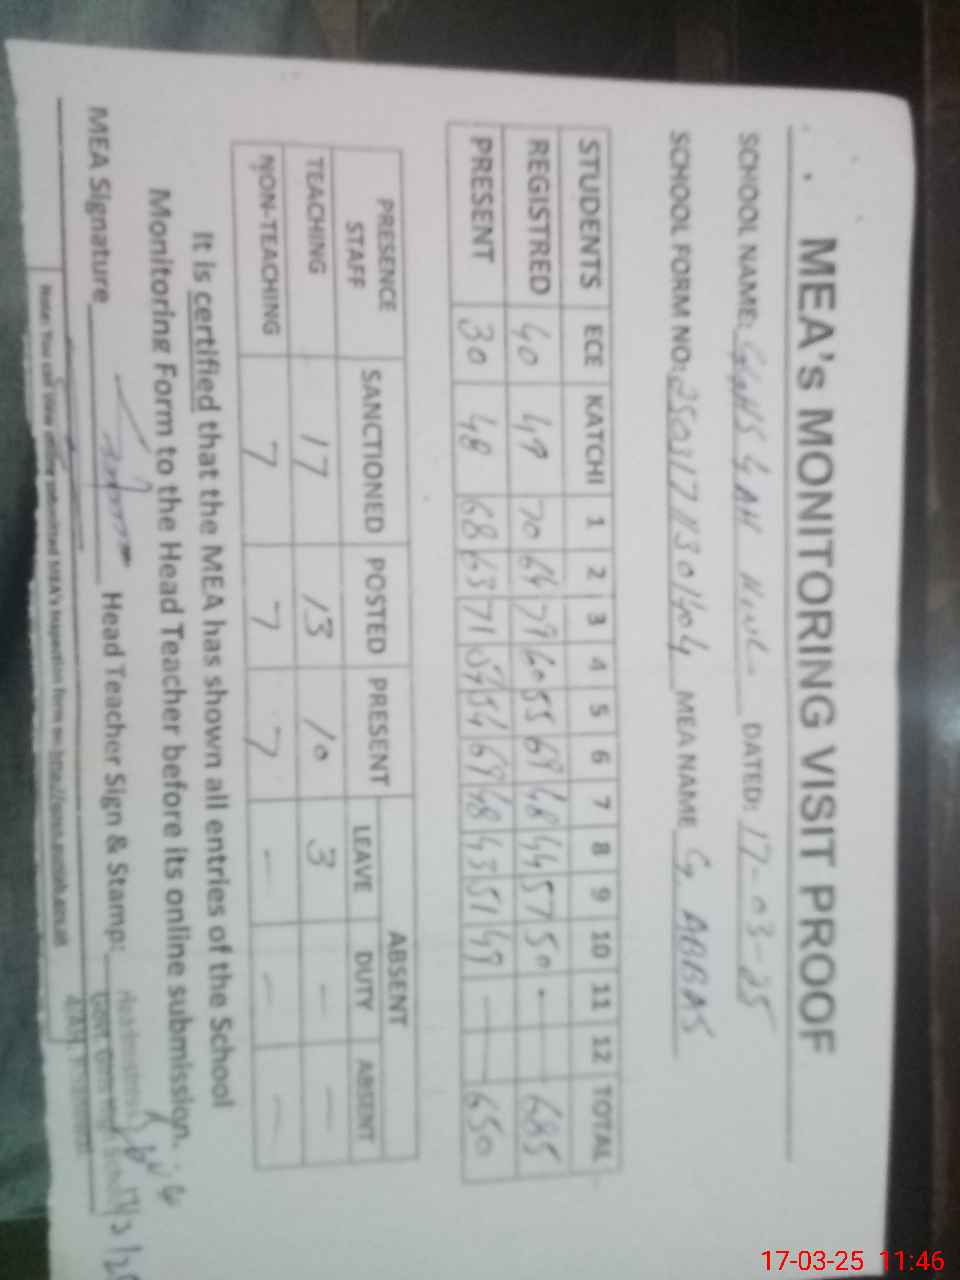 MEA's MONITORING VISIT PROOF
SCHOOL NAME: DATED: 17-03-25
SCHOOL FORM NO: MEA NAME G. ABBAS
STUDENTS ECE KATCHI 1 2 3 4 5 6 7 8 9 10 11 12 TOTAL
REGISTRED 40 49 70 64 79 60 55 69 48 44 57 50 - 685
PRESENT 30 48 68 63 71 54 69 48 43 51 49 - - 650
PRESENCE STAFF SANCTIONED POSTED PRESENT ABSENT
LEAVE DUTY ABSENT
TEACHING 17 13 10 3 - -
NON-TEACHING 7 7 7 - - -
It is certified that the MEA has shown all entries of the School
Monitoring Form to the Head Teacher before its online submission.
MEA Signature Head Teacher Sign & Stamp:
Note: You can view submitted MEA's inspection form on
17-03-25 11:46